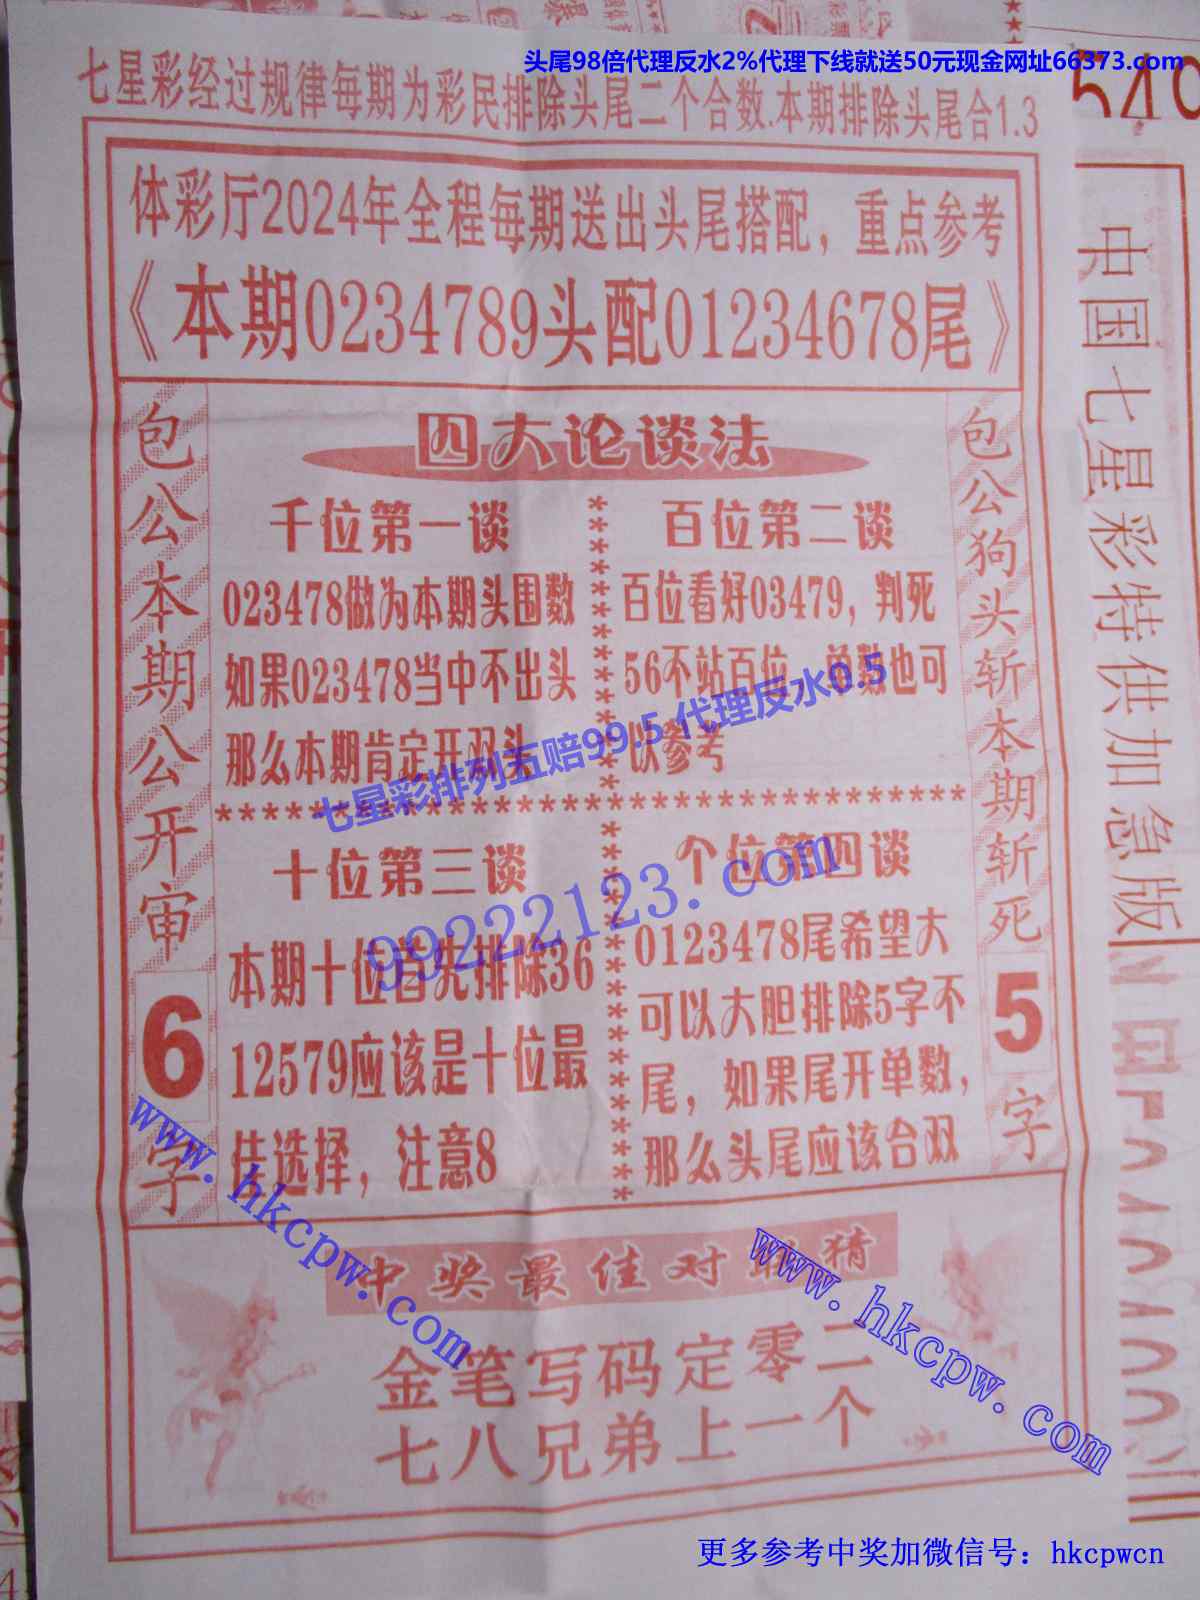 头尾98倍代理反水2%代理下线就送50元现金网址66373.com
七星彩经过规律每期为彩民排除头尾二个合数.本期排除头尾合1.3
体彩厅2024年全程每期送出头尾搭配，重点参考
《本期0234789头配01234678尾》
包公本期公开审
6
字
四大论谈法
千位第一谈
023478做为本期头围数
如果023478当中不出头
那么本期肯定开双头
百位第二谈
百位看好03479，判死
56不站百位，单数也可
以参考
七星彩排列五赔99.5 代理反水0.5
99222123.com
十位第三谈
本期十位首先排除36
12579应该是十位最
佳选择，注意8
个位第四谈
0123478尾希望大
可以大胆排除5字不
尾，如果尾开单数，
那么头尾应该合双
包公狗头斩本期斩死
5
字
中奖最佳对联猜
金笔写码定零二
七八兄弟上一个
www.hkcpw.com
www.hkcpw.com
中国七星彩特供加急版
更多参考中奖加微信号：hkcpwcn